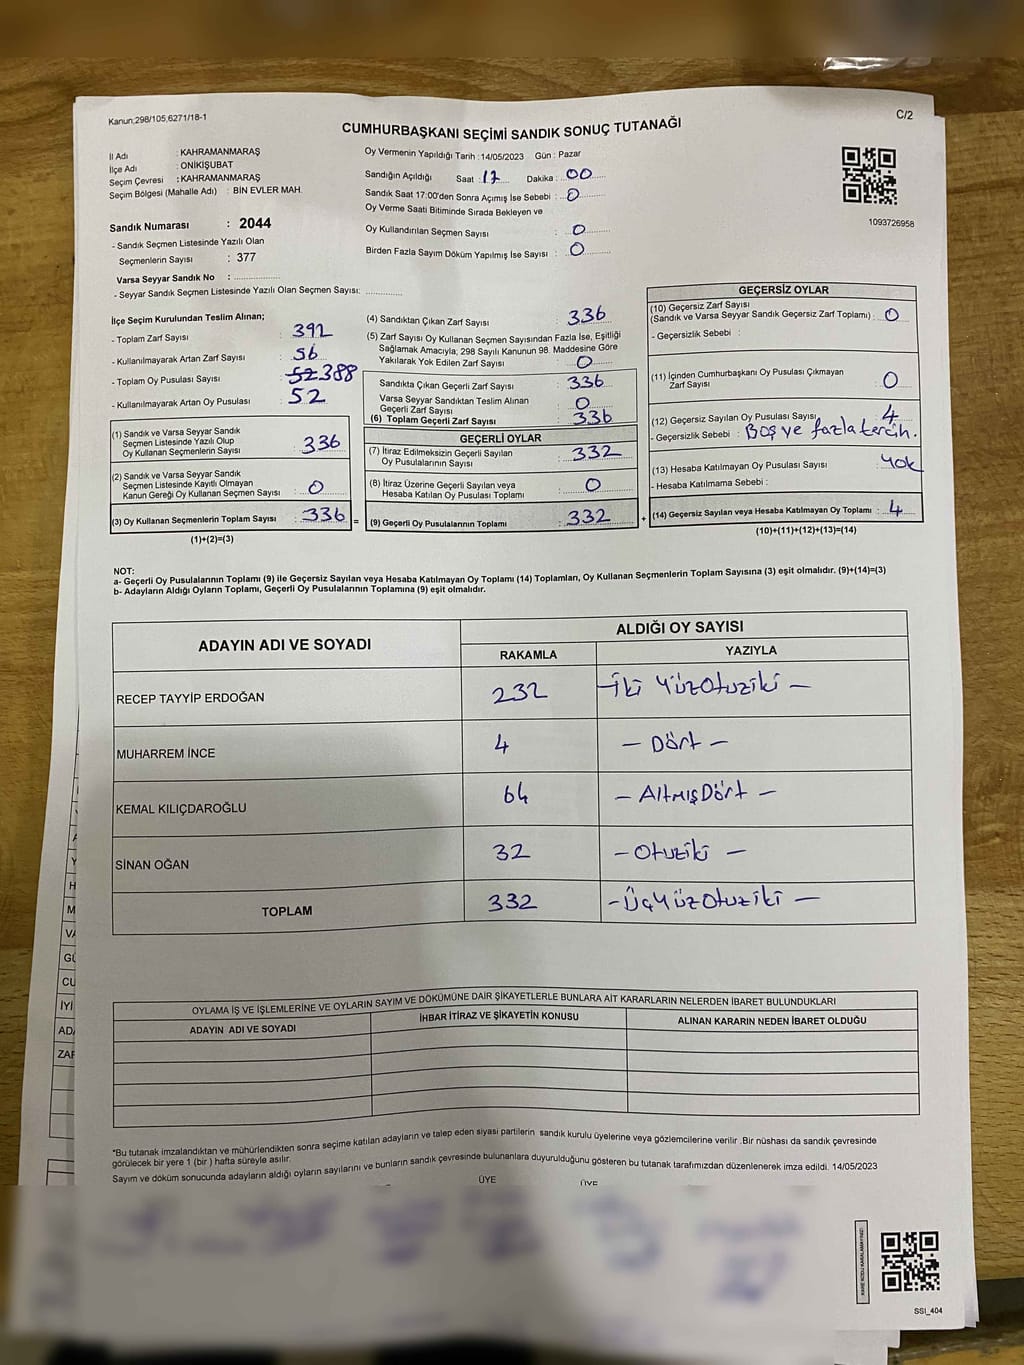 Kanun;298/105,6271/18-1
C/2
CUMHURBAŞKANI SEÇİMİ SANDIK SONUÇ TUTANAĞI
İl Adı : KAHRAMANMARAŞ
İlçe Adı : ONİKİŞUBAT
Seçim Çevresi : KAHRAMANMARAŞ
Seçim Bölgesi (Mahalle Adı) : BİN EVLER MAH.
Sandık Numarası : 2044
- Sandık Seçmen Listesinde Yazılı Olan
Seçmenlerin Sayısı : 377
Varsa Seyyar Sandık No : ....................
- Seyyar Sandık Seçmen Listesinde Yazılı Olan Seçmen Sayısı: .............
Oy Vermenin Yapıldığı Tarih :14/05/2023 Gün : Pazar
Sandığın Açıldığı Saat : 17 Dakika : 00
Sandık Saat 17:00'den Sonra Açımış İse Sebebi : 0
Oy Verme Saati Bitiminde Sırada Bekleyen ve
Oy Kullandırılan Seçmen Sayısı : 0
Birden Fazla Sayım Döküm Yapılmış İse Sayısı : 0
1093726958
İlçe Seçim Kurulundan Teslim Alınan;
- Toplam Zarf Sayısı : 392
- Kullanılmayarak Artan Zarf Sayısı : 56
- Toplam Oy Pusulası Sayısı : 52 388
- Kullanılmayarak Artan Oy Pusulası : 52
(1) Sandık ve Varsa Seyyar Sandık
Seçmen Listesinde Yazılı Olup
Oy Kullanan Seçmenlerin Sayısı : 336
(2) Sandık ve Varsa Seyyar Sandık
Seçmen Listesinde Kayıtlı Olmayan
Kanun Gereği Oy Kullanan Seçmen Sayısı : 0
(3) Oy Kullanan Seçmenlerin Toplam Sayısı : 336 =
(1)+(2)=(3)
(4) Sandıktan Çıkan Zarf Sayısı : 336
(5) Zarf Sayısı Oy Kullanan Seçmen Sayısından Fazla İse, Eşitliği
Sağlamak Amacıyla; 298 Sayılı Kanunun 98. Maddesine Göre
Yakılarak Yok Edilen Zarf Sayısı : 0
Sandıkta Çıkan Geçerli Zarf Sayısı : 336
Varsa Seyyar Sandıktan Teslim Alınan
Geçerli Zarf Sayısı : 0
(6) Toplam Geçerli Zarf Sayısı : 336
GEÇERLİ OYLAR
(7) İtiraz Edilmeksizin Geçerli Sayılan
Oy Pusulalarının Sayısı : 332
(8) İtiraz Üzerine Geçerli Sayılan veya
Hesaba Katılan Oy Pusulası Toplamı : 0
(9) Geçerli Oy Pusulalarının Toplamı : 332 +
GEÇERSİZ OYLAR
(10) Geçersiz Zarf Sayısı
(Sandık ve Varsa Seyyar Sandık Geçersiz Zarf Toplamı) : 0
- Geçersizlik Sebebi :
(11) İçinden Cumhurbaşkanı Oy Pusulası Çıkmayan
Zarf Sayısı : 0
(12) Geçersiz Sayılan Oy Pusulası Sayısı : 4
- Geçersizlik Sebebi : Boş ve fazla tercih.
(13) Hesaba Katılmayan Oy Pusulası Sayısı : Yok
- Hesaba Katılmama Sebebi :
(14) Geçersiz Sayılan veya Hesaba Katılmayan Oy Toplamı : 4
(10)+(11)+(12)+(13)=(14)
NOT:
a- Geçerli Oy Pusulalarının Toplamı (9) ile Geçersiz Sayılan veya Hesaba Katılmayan Oy Toplamı (14) Toplamları, Oy Kullanan Seçmenlerin Toplam Sayısına (3) eşit olmalıdır. (9)+(14)=(3)
b- Adayların Aldığı Oyların Toplamı, Geçerli Oy Pusulalarının Toplamına (9) eşit olmalıdır.
ADAYIN ADI VE SOYADI ALDIĞI OY SAYISI
RAKAMLA YAZIYLA
RECEP TAYYİP ERDOĞAN 232 -İki Yüz Otuziki -
MUHARREM İNCE 4 - Dört -
KEMAL KILIÇDAROĞLU 64 - Altmış Dört -
SİNAN OĞAN 32 - Otuziki -
TOPLAM 332 - Üçyüz Otuziki -
OYLAMA İŞ VE İŞLEMLERİNE VE OYLARIN SAYIM VE DÖKÜMÜNE DAİR ŞİKAYETLERLE BUNLARA AİT KARARLARIN NELERDEN İBARET BULUNDUKLARI
ADAYIN ADI VE SOYADI İHBAR İTİRAZ VE ŞİKAYETİN KONUSU ALINAN KARARIN NEDEN İBARET OLDUĞU
*Bu tutanak imzalandıktan ve mühürlendikten sonra seçime katılan adayların ve talep eden siyasi partilerin sandık kurulu üyelerine veya gözlemcilerine verilir .Bir nüshası da sandık çevresinde
görülecek bir yere 1 (bir ) hafta süreyle asılır.
Sayım ve döküm sonucunda adayların aldığı oyların sayılarını ve bunların sandık çevresinde bulunanlara duyurulduğunu gösteren bu tutanak tarafımızdan düzenlenerek imza edildi. 14/05/2023
ÜYE ÜYE
SSI_404